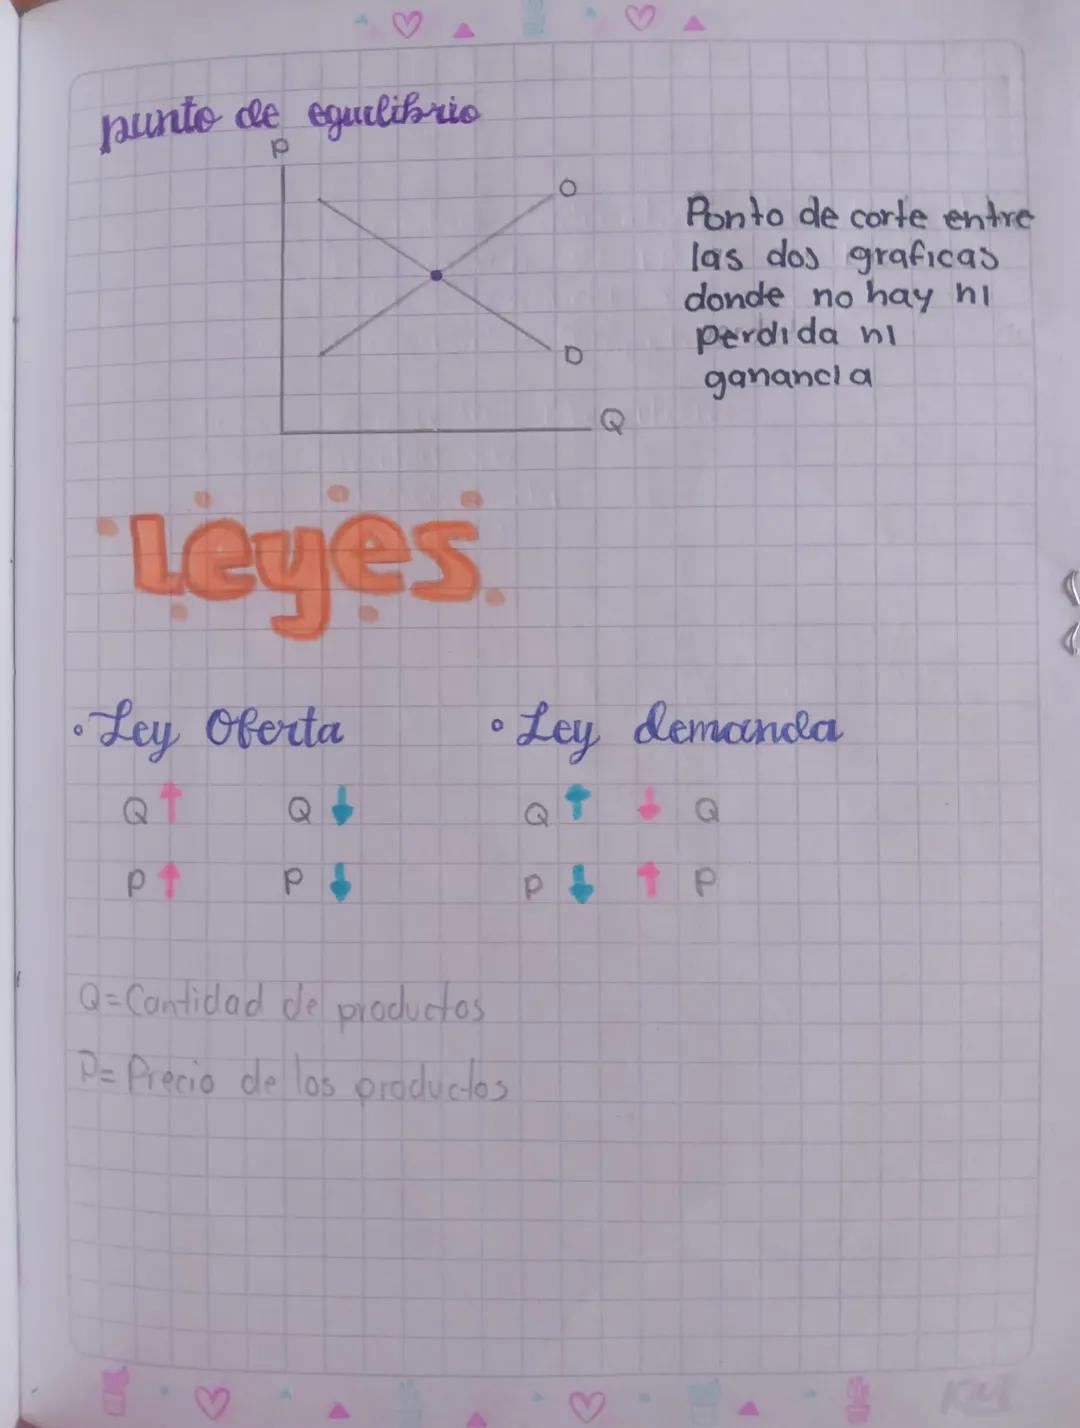 punto de equilibrio
P
O
D
Q
Ponto de corte entre
las dos graficas
donde no hay ni
perdida ni
ganancia
Leyes
• Ley Oferta
Q ↑ Q ↓
P ↑ P ↓
• Ley demanda
Q ↑ ↓ Q
P ↓ ↑ P
Q=Cantidad de productos
P= Precio de los productos